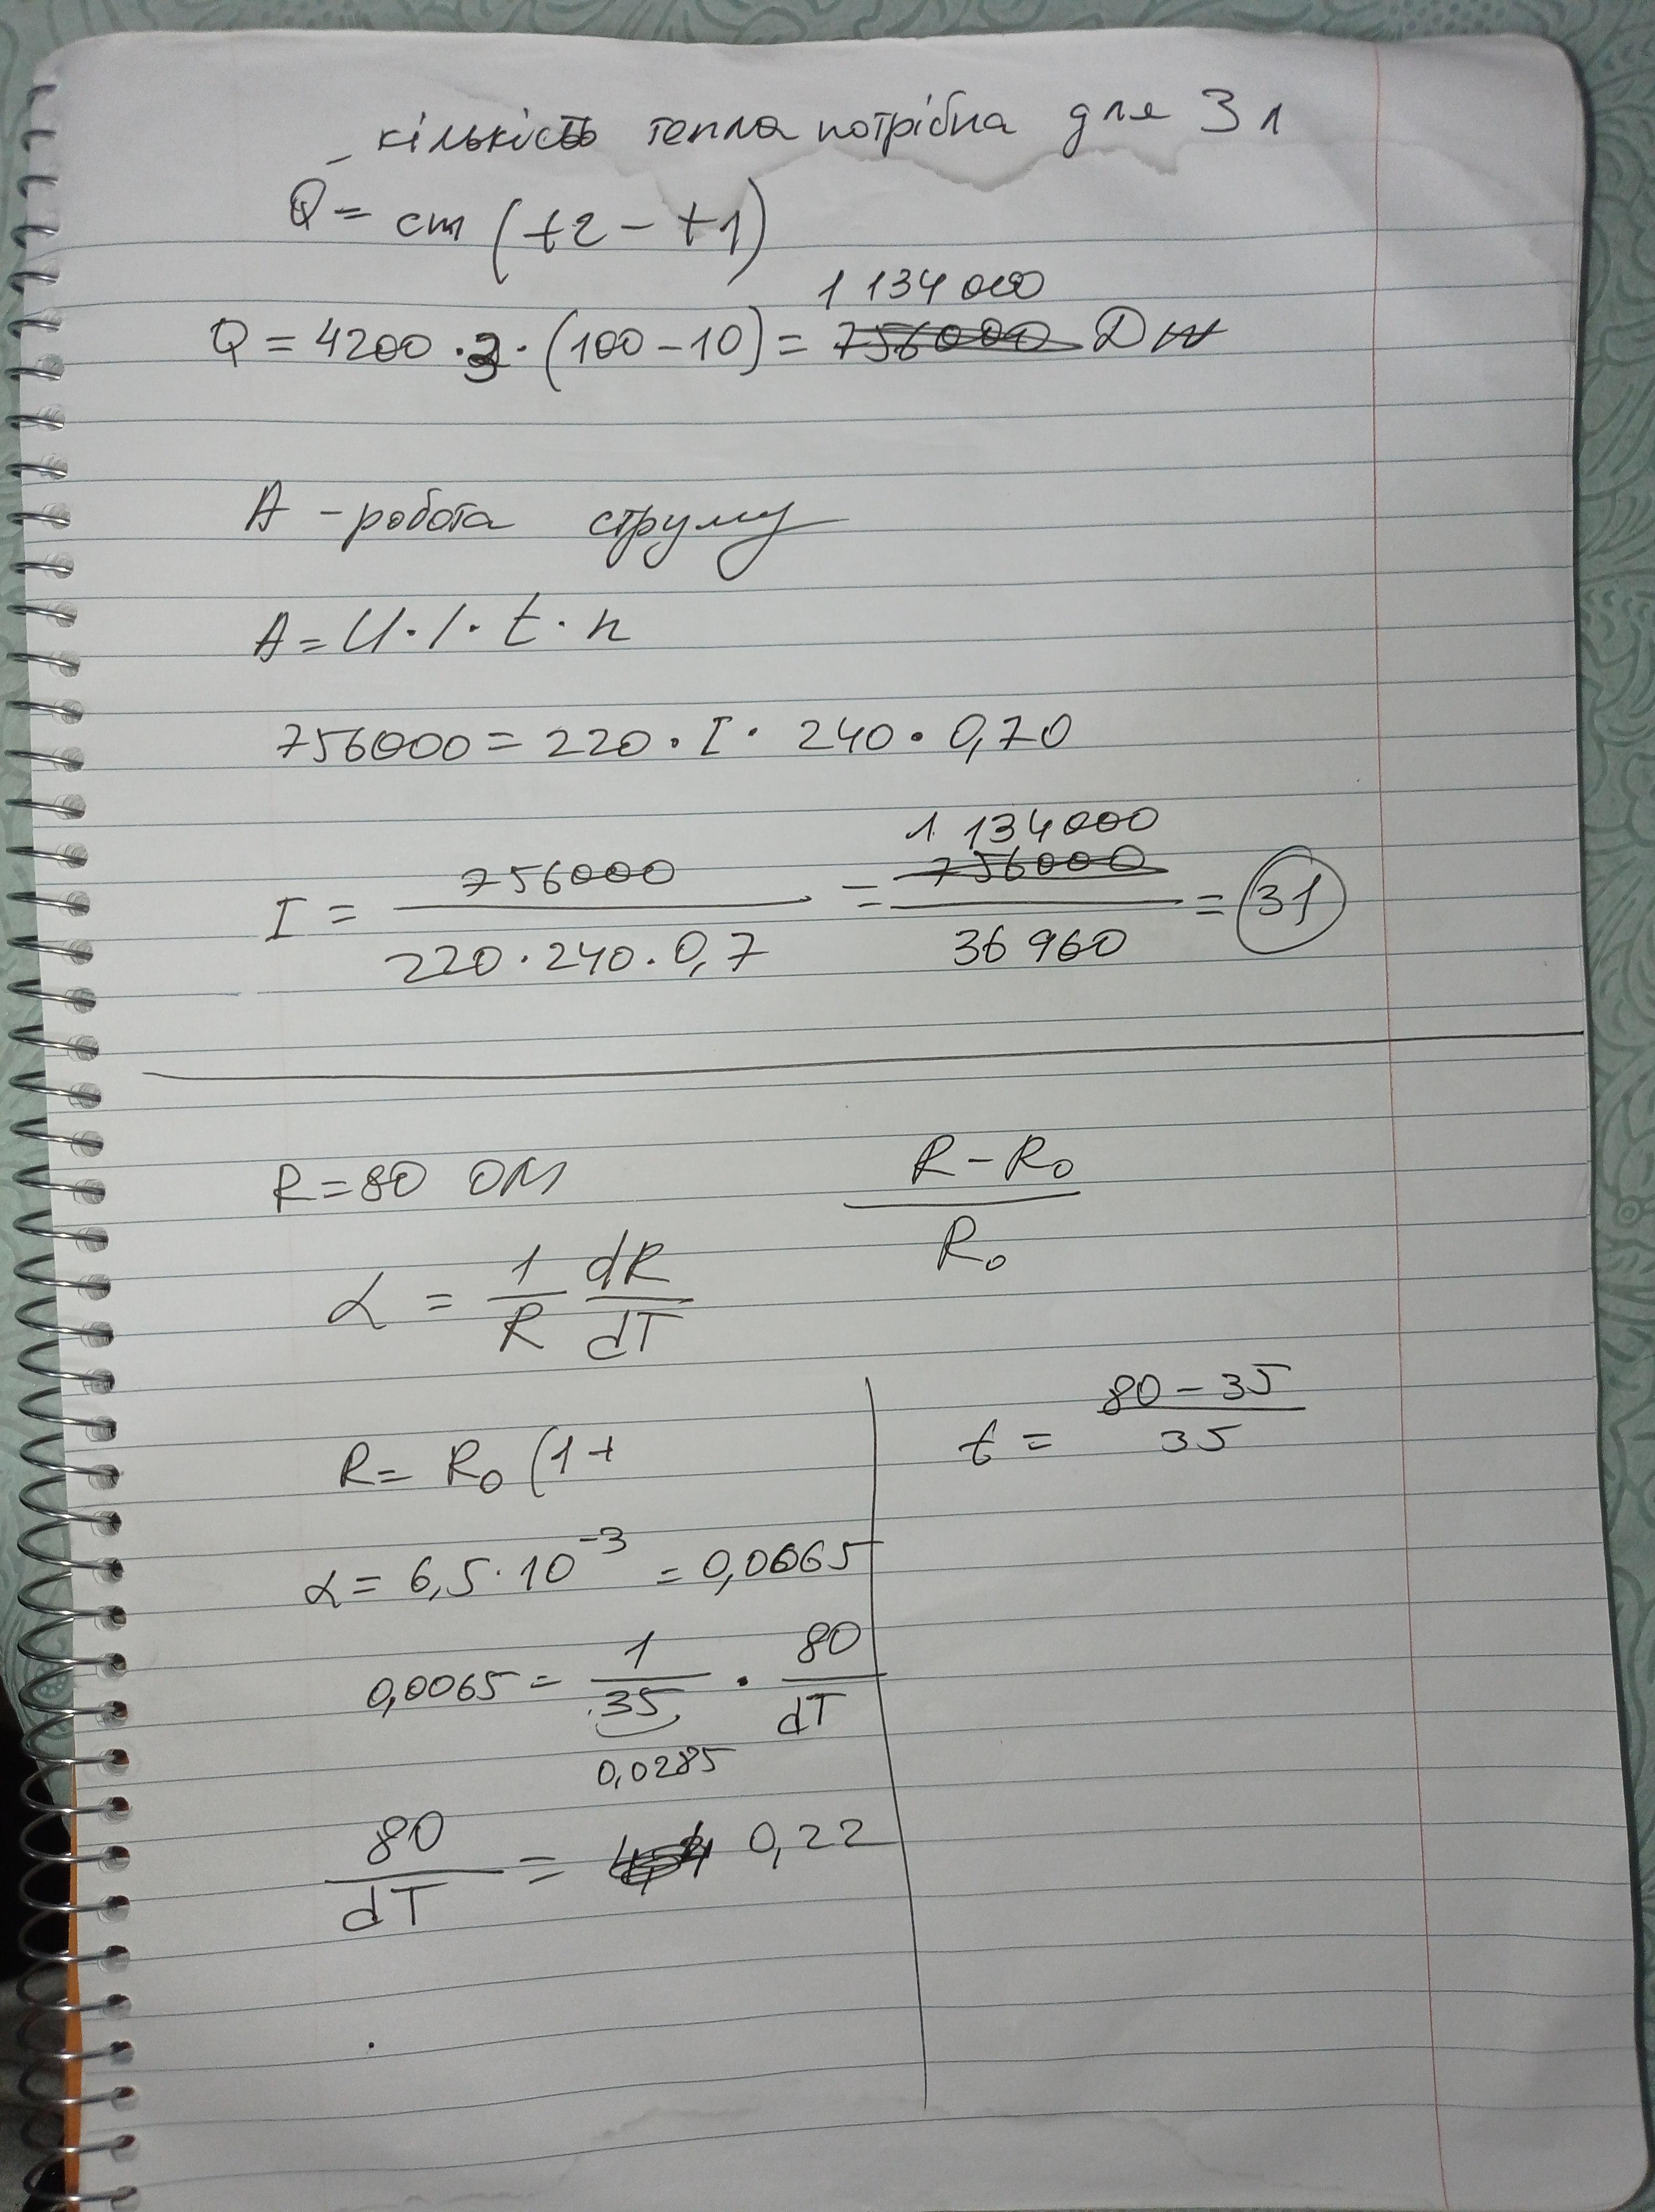 кількість тепла потрібна для 3 л
Q = cm (t2 - t1)
1 134 000
Q = 4200 · 3 · (100 - 10) = 756000 Дж
A - робота струму
A = U · I · t · n
756000 = 220 · I · 240 · 0,70
1 134000
I = 756000 / 220 · 240 · 0,7 = 756000 / 36 960 = 31
R = 80 ОМ
R - R₀ / R₀
α = 1/R dR/dT
R = R₀ (1 +
t = 80 - 35 / 35
α = 6,5 · 10⁻³ = 0,0065
0,0065 = 1/35 · 80/dT
0,0285
80/dT = 0,22